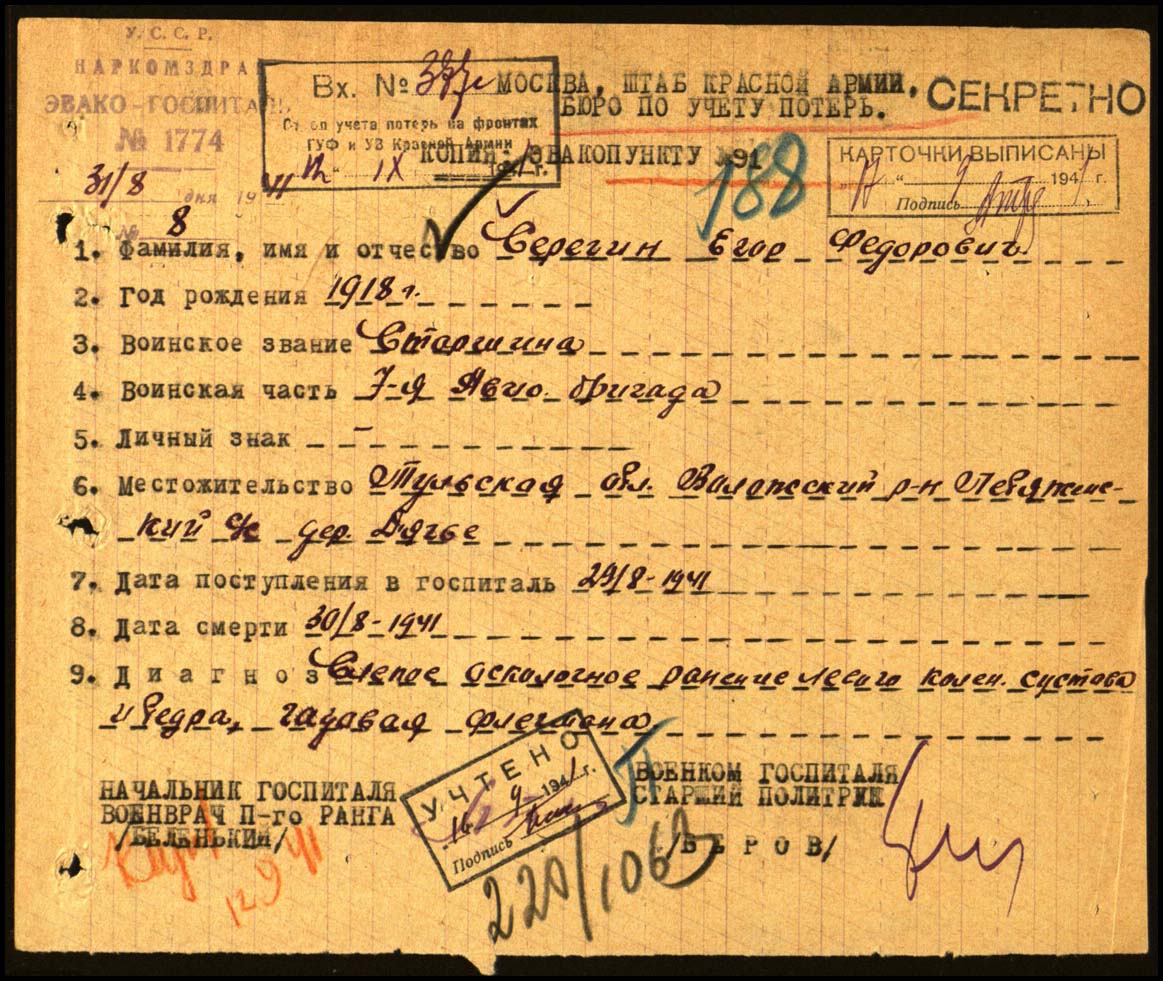 У. С. С. Р.
НАРКОМЗДРА
ЭВАКО-ГОСПИТАЛ
№ 1774
31/8 дня 19 41
№ 8
Вх. №
Отдел учета потерь на фронтах
ГУФ и УЗ Красной Армии
12 " IX 194 г.
МОСКВА, ШТАБ КРАСНОЙ АРМИИ,
БЮРО ПО УЧЕТУ ПОТЕРЬ.
КОПИЯ: ЭВАКОПУНКТУ №91
СЕКРЕТНО
188
КАРТОЧКИ ВЫПИСАНЫ
" 9 1941 г.
Подпись
1. Фамилия, имя и отчество Серегин Егор Федорович
2. Год рождения 1918 г.
3. Воинское звание Старшина
4. Воинская часть 7-я Авио. бригада
5. Личный знак –
6. Местожительство Тульская обл. р-н
кий с/с дер.
7. Дата поступления в госпиталь 29/8-1941
8. Дата смерти 30/8-1941
9. Диагноз Слепое осколочное ранение левого колен. сустава
и бедра, газовая флегмона.
НАЧАЛЬНИК ГОСПИТАЛЯ
ВОЕНВРАЧ П-го РАНГА
/БЕЛЕНЬКИЙ/
УЧТЕНО
9 1941 г.
Подпись
ВОЕНКОМ ГОСПИТАЛЯ
СТАРШИЙ ПОЛИТРУК
/БЕРОВ/
12 9 41
220/106